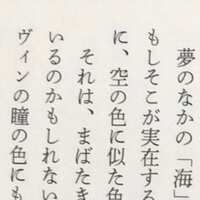 夢のなかの「海」
もしそこが実在する
に、空の色に似た色
それは、まばたき
いるのかもしれない
ヴィンの瞳の色にも